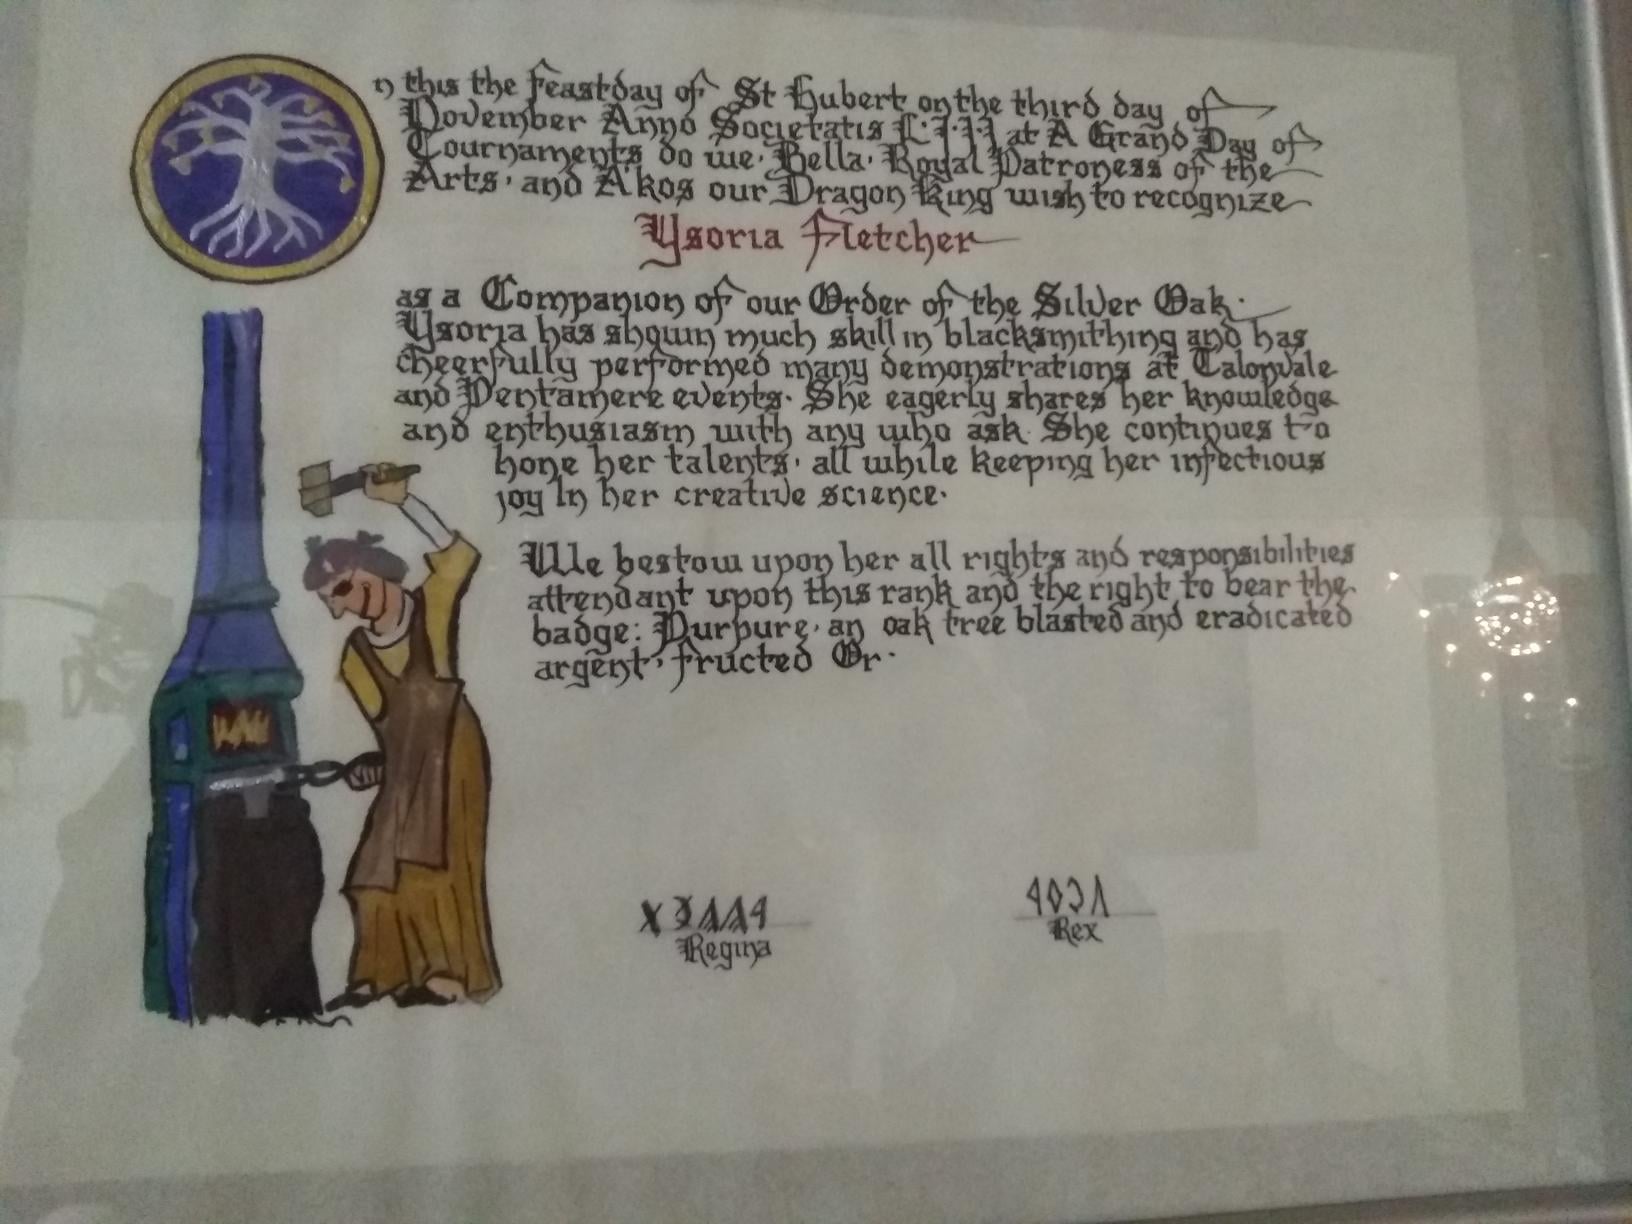 n this the Feastday of St Hubert on the third day of
November Anno Societatis L.I.I.I at A Grand Day of
Tournaments do we. Bella. Royal Patroness of the
Arts. and Ákos our Dragon King wish to recognize
Ysoria Fletcher
as a Companion of our Order of the Silver Oak.
Ysoria has shown much skill in blacksmithing and has
cheerfully performed many demonstrations at Talonvale
and Pentamere events. She eagerly shares her knowledge
and enthusiasm with any who ask. She continues to
hone her talents. all while keeping her infectious
joy in her creative science.
We bestow upon her all rights and responsibilities
attendant upon this rank and the right to bear the
badge: Purpure. an oak tree blasted and eradicated
argent. fructed Or.
Regina
Rex